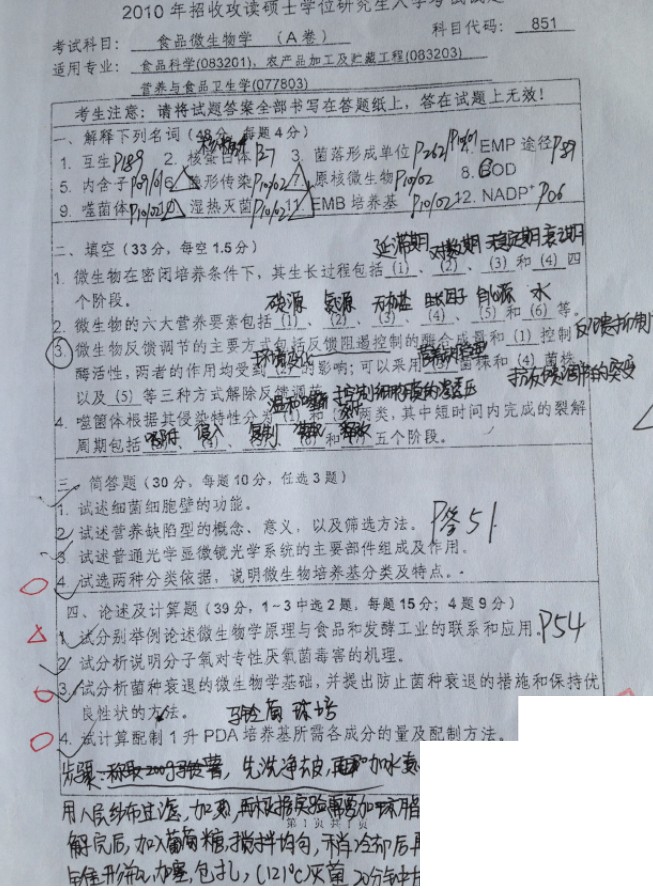 2010年招收攻读硕士学位研究生入学考试试题
考试科目：食品微生物学（A卷） 科目代码：851
适用专业：食品科学(083201)，农产品加工及贮藏工程(083203)
营养与食品卫生学(077803)
考生注意：请将试题答案全部书写在答题纸上，答在试题上无效！
一、解释下列名词（48分，每题4分）
1. 互生P189 2. 核蛋白体P27 3. 菌落形成单位P262 4. EMP途径P89
5. 内含子 6. 隐形传染P10/02 7. 原核微生物P10/02 8. BOD
9. 噬菌体P10/02 10. 湿热灭菌P10/02 11. EMB培养基P10/02 12. NADP⁺ P06
二、填空（33分，每空1.5分）
延滞期 对数期 稳定期 衰亡期
1. 微生物在密闭培养条件下，其生长过程包括(1)、(2)、(3)和(4)四
个阶段。
碳源 氮源 无机盐 生长因子 能源 水
2. 微生物的六大营养要素包括(1)、(2)、(3)、(4)、(5)和(6)等。
3. 微生物反馈调节的主要方式包括反馈阻遏控制的酶合成量和(1)控制
酶活性，两者的作用均受到(2)的影响；可以采用(3)菌株和(4)菌株
以及(5)等三种方式解除反馈调节
控制细胞膜的渗透压
4. 噬菌体根据其侵染特性分为(1)和(2)两类，其中短时间内完成的裂解
周期包括 吸附、侵入、复制、和 五个阶段。
三、简答题（30分，每题10分，任选3题）
1. 试述细菌细胞壁的功能。
2. 试述营养缺陷型的概念、意义，以及筛选方法。P答51
3. 试述普通光学显微镜光学系统的主要部件组成及作用。
4. 试选两种分类依据，说明微生物培养基分类及特点。
四、论述及计算题（39分，1~3中选2题，每题15分；4题9分）
1. 试分别举例论述微生物学原理与食品和发酵工业的联系和应用。P54
2. 试分析说明分子氧对专性厌氧菌毒害的机理。
3. 试分析菌种衰退的微生物学基础，并提出防止菌种衰退的措施和保持优
良性状的方法。 马铃薯 琼脂
4. 试计算配制1升PDA培养基所需各成分的量及配制方法。
步骤：称取200g马铃薯，先洗净去皮，再加水煮
用人民纱布过滤，加热，再根据实验需要加琼脂
第1页 共1页
解完后，加入葡萄糖，搅拌均匀，稍冷却后再
锥形瓶，加塞，包扎，(121℃)灭菌 20分钟